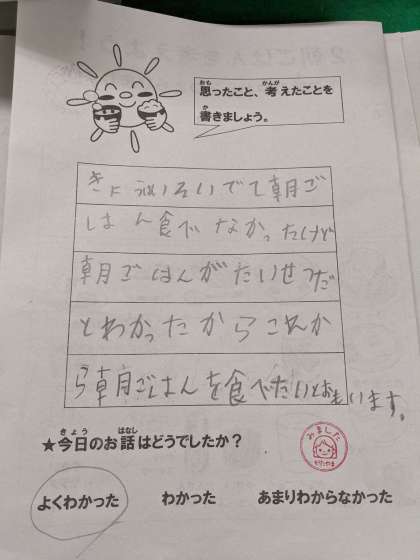 思ったこと、考えたことを
書きましょう。
きょういそいでて朝ご
はん食べなかったけど
朝ごはんがたいせつだ
とわかったからこれか
ら朝ごはんを食べたいとおもいます。
★今日のお話はどうでしたか？
みました
よくわかった わかった あまりわからなかった